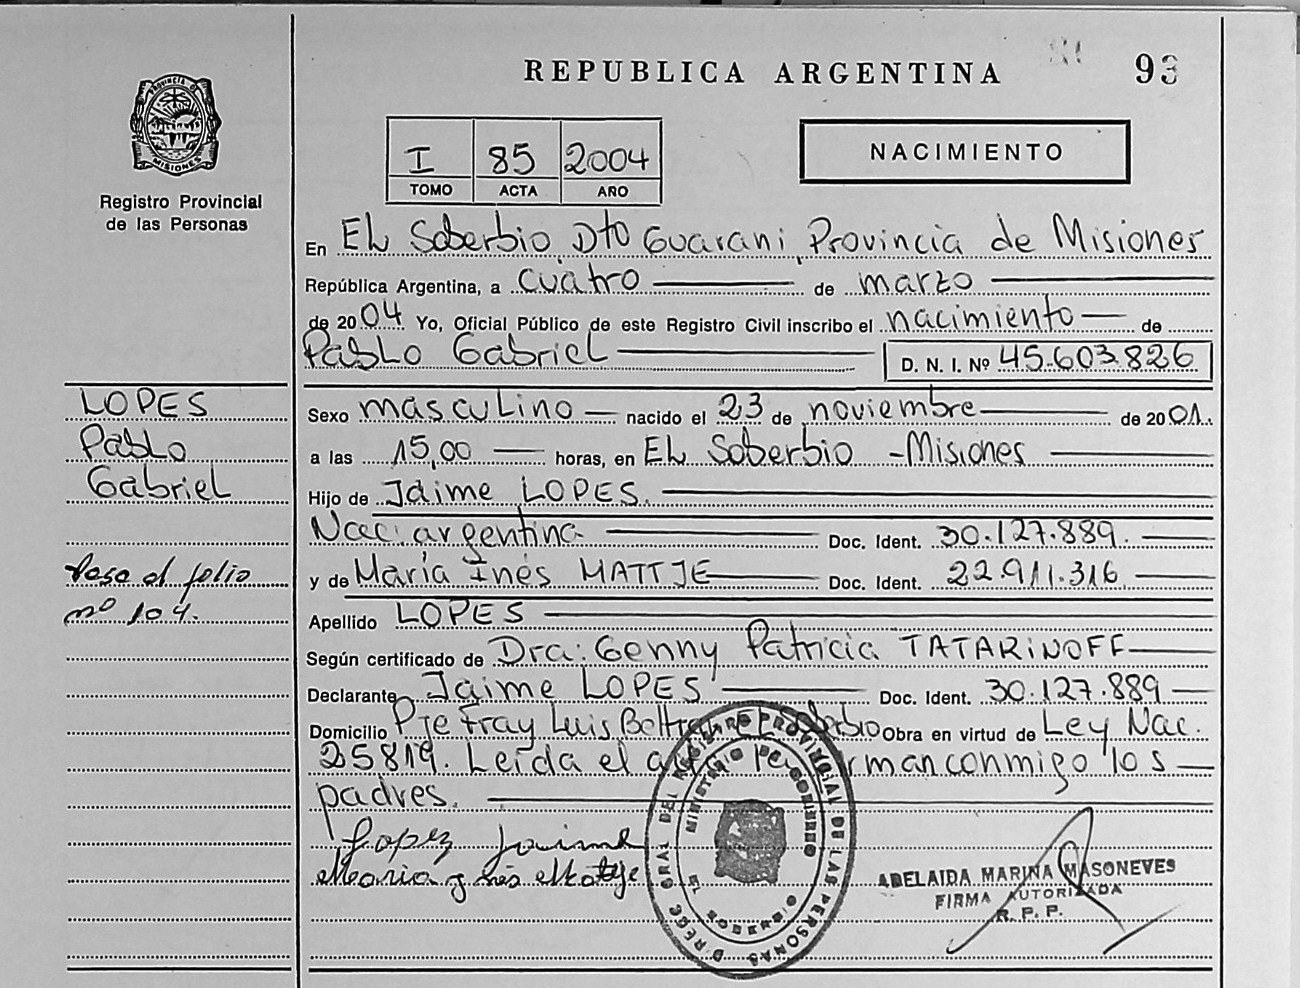 REPUBLICA ARGENTINA
93
PROVINCIA DE
MISIONES
Registro Provincial
de las Personas
I 85 2004
TOMO ACTA AÑO
NACIMIENTO
En EL Soberbio, Dto Guarani, Provincia de Misiones
República Argentina, a cuatro de marzo
de 2004 Yo, Oficial Público de este Registro Civil inscribo el nacimiento de
Pablo Gabriel D. N. I. Nº 45.603.826
LOPES
Pablo
Gabriel
Pasa al folio
nº 104.
Sexo masculino nacido el 23 de noviembre de 2001.
a las 15,00 horas, en EL Soberbio - Misiones
Hijo de Jaime LOPES.
Nac: argentina. Doc. Ident. 30.127.889.
y de María Inés MATTJE Doc. Ident. 22.911.316
Apellido LOPES
Según certificado de Dra: Genny Patricia TATARINOFF
Declarante Jaime LOPES Doc. Ident. 30.127.889
Domicilio Pje Fray Luis Beltrán EL Soberbio Obra en virtud de Ley Nac.
25819. Leída el acta firman conmigo los
padres.
Lopez Jaime
Maria Ines Mattje
DIREC. GRAL. DEL REGISTRO PROVINCIAL DE LAS PERSONAS
MINISTERIO DE GOBIERNO
EL SOBERBIO
ADELAIDA MARINA MASONEVES
FIRMA AUTORIZADA
R. P. P.